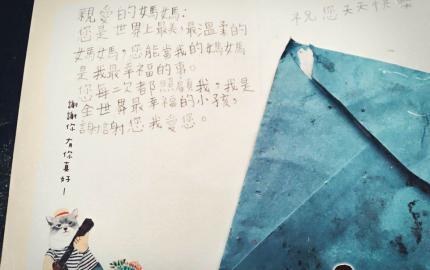 親愛的媽媽:
您是世界上最美,最溫柔的
媽媽,您能當我的媽媽
是我最幸福的事。
您每二次都照顧我,我是
全世界最幸福的小孩,
謝謝您我愛您。
祝您天天快樂
謝謝你 有你真好!